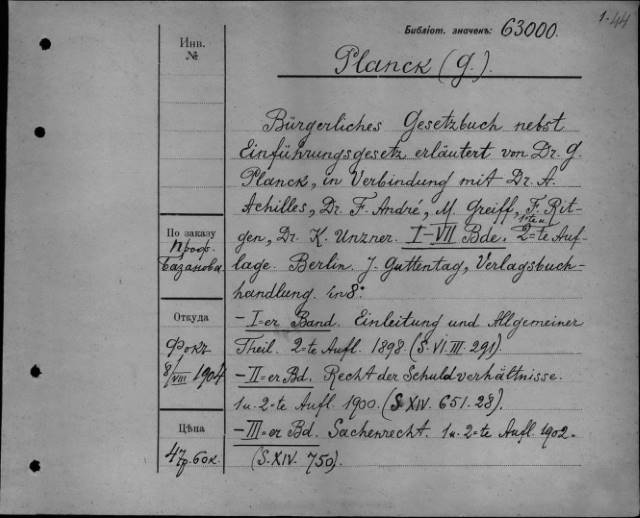 1-44
Библіот. значекъ: 63000.
Инв.
№
Planck (G.).
Bürgerliches Gesetzbuch nebst
Einführungsgesetz erläutert von Dr. G.
Planck, in Verbindung mit Dr. A.
Achilles, Dr. F. André, M. Greiff, F. Rit-
gen, Dr. K. Unzner. I-VII Bde. 1-te u. 2-te Auf-
lage. Berlin. J. Guttentag, Verlagsbuch-
handlung. in 8°.
По заказу
проф.
Базанова.
Откуда
Фокъ
8/VIII 1904
Цѣна
47р. 60к.
- I-er Band. Einleitung und Allgemeiner
Theil. 2-te Aufl. 1898. (S. VI. III. 291).
- II-er Bd. Recht der Schuldverhältnisse.
1 u. 2-te Aufl. 1900. (S. XIV. 651. 28).
- III-er Bd. Sachenrecht. 1 u. 2-te Aufl. 1902.
(S. XIV. 750).